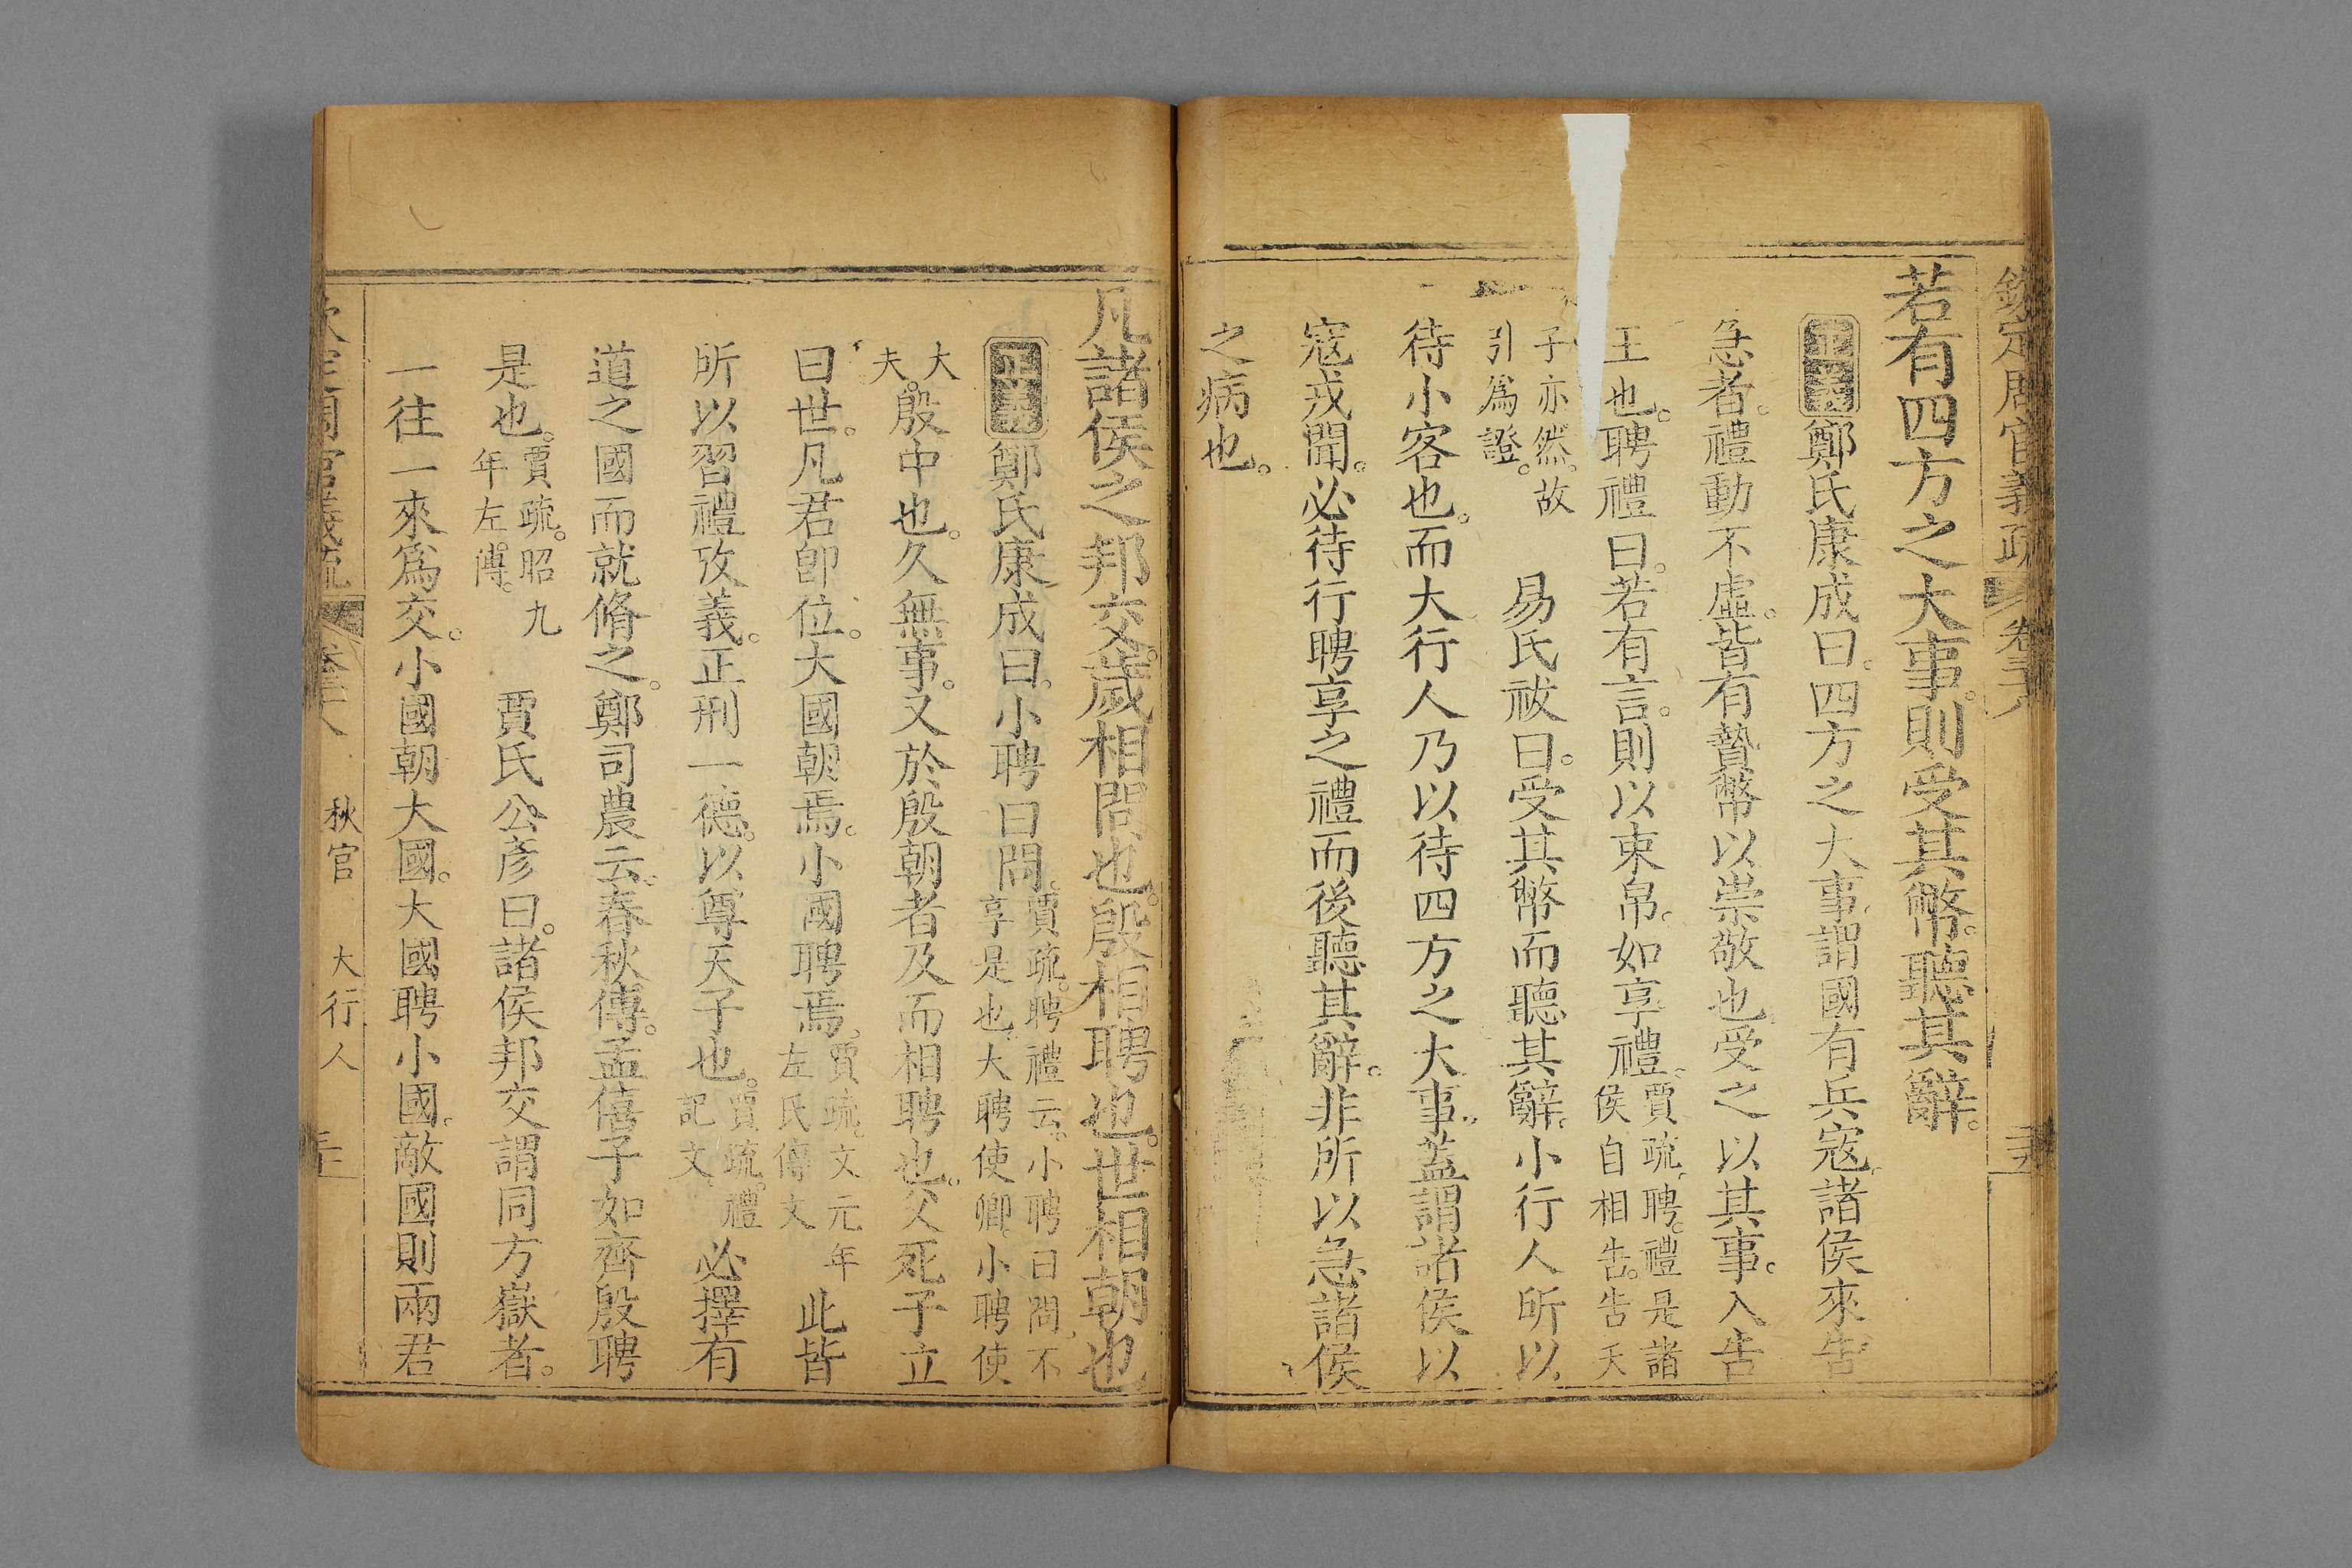 欽定周官義疏 卷三十八
若有四方之大事。則受其幣。聽其辭。
正義 鄭氏康成曰。四方之大事。謂國有兵寇。諸侯來告
急者。禮動不虛。皆有贄幣以崇敬也。受之以其事。入告
王也。聘禮曰。若有言。則以束帛。如享禮。賈疏。聘禮。是諸侯自相告。告天
子亦然。故引爲證。 易氏祓曰。受其幣而聽其辭。小行人所以
待小客也。而大行人乃以待四方之大事。蓋謂諸侯以
寇戎聞。必待行聘享之禮而後聽其辭。非所以急諸侯
之病也。
凡諸侯之邦交。歲相問也。殷相聘也。世相朝也
正義 鄭氏康成曰。小聘曰問。賈疏。聘禮云。小聘曰問。不享是也。大聘使卿。小聘使
大夫。殷中也。久無事。又於殷朝者及而相聘也。父死子立
曰世。凡君卽位。大國朝焉。小國聘焉。賈疏。文元年左氏傳文 此皆
所以習禮攷義。正刑一德。以尊天子也。賈疏。禮記文 必擇有
道之國而就脩之。鄭司農云。春秋傳。孟僖子如齊殷聘
是也。賈疏。昭九年左傳。 賈氏公彥曰。諸侯邦交謂同方嶽者。
一往一來爲交。小國朝大國。大國聘小國。敵國則兩君
欽定周官義疏 卷三十八 秋官 大行人